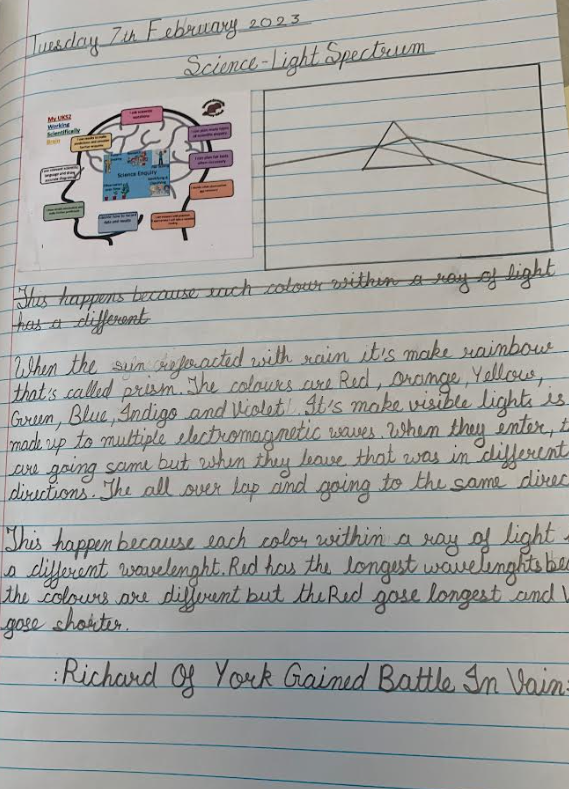 Tuesday 7th February 2023
Science-Light Spectrum
My UKS2
Working
Scientifically
Brain
Science Enquiry
This happens because each colour within a ray of light
has a different
When the sun referacted with rain it's make rainbow
that's called prism. The colours are Red, Orange, Yellow,
Green, Blue, Indigo and Violet. It's make visible light is
made up to multiple electromagnetic waves. When they enter, t
are going same but when they leave that was in different
directions. The all over lap and going to the same direc
This happen because each color within a ray of light
a different wavelenght. Red has the longest wavelenghts be
the colours are different but the Red gose longest and V
gose shorter.
:Richard Of York Gained Battle In Vain: